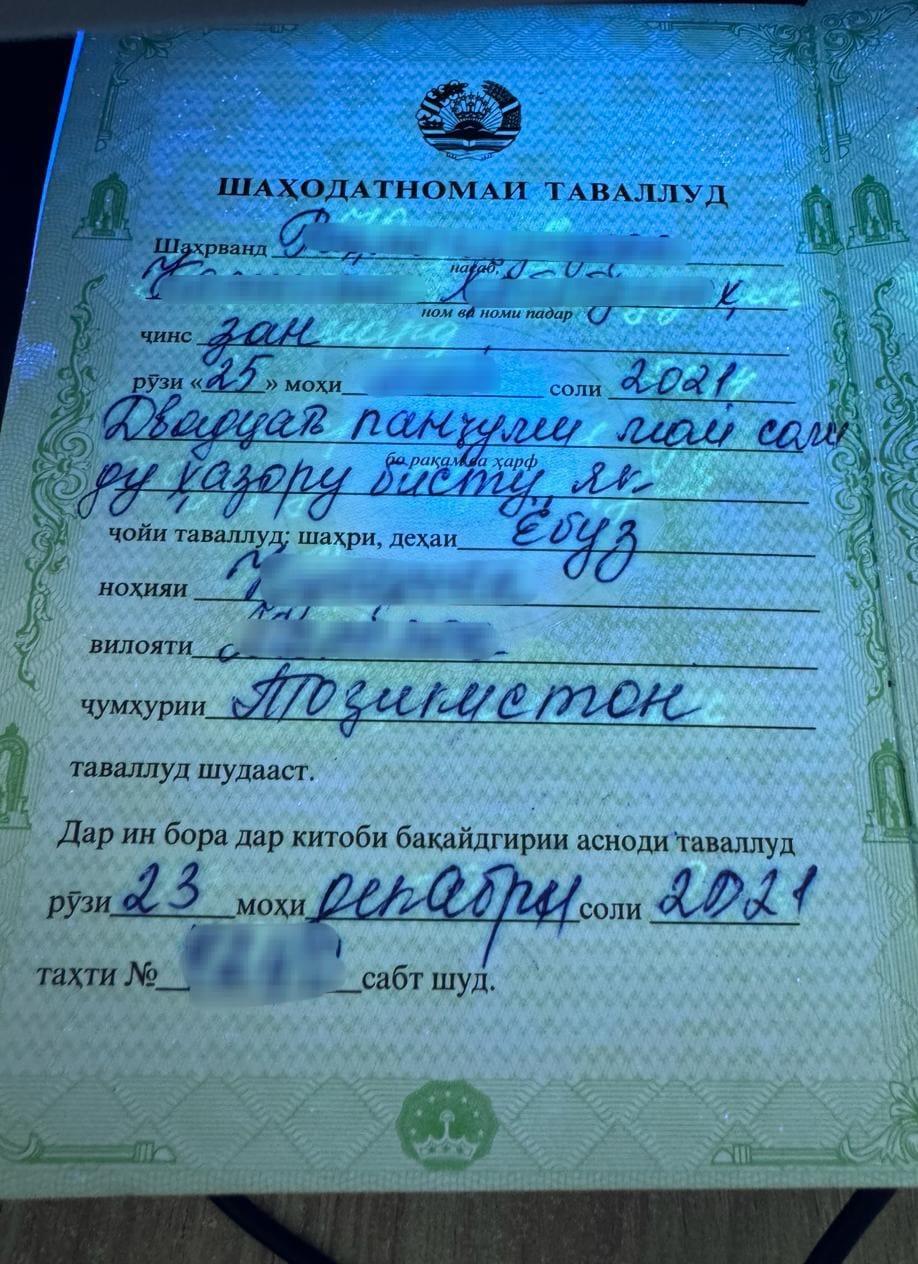 ШАҲОДАТНОМАИ ТАВАЛЛУД
Шаҳрванд
насаб,
ном ва номи падар
ҷинс зан
рӯзи «25» моҳи соли 2021
Двадцать панҷуми май соли
бо рақам ва ҳарф
ду ҳазору бисту як
ҷойи таваллуд: шаҳри, деҳаи Ёбуз
ноҳияи
вилояти
ҷумҳурии Тоҷикистон
таваллуд шудааст.
Дар ин бора дар китоби бақайдгирии асноди таваллуд
рӯзи 23 моҳи декабри соли 2021
таҳти № сабт шуд.